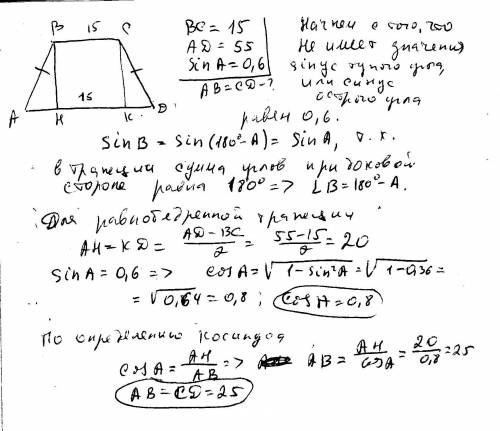 B 15 C
BC = 15
Начнем с того, что
AD = 55
Не имеет значения
Sin A = 0,6
синус тупого угла,
AB = CD - ?
или синус
15
острого угла
A H K D
равен 0,6.
Sin B = Sin (180° - A) = Sin A, т.к.
в трапеции сумма углов при боковой
стороне равна 180° => ∠B = 180° - A.
Для равнобедренной трапеции
AH = KD = \frac{AD - BC}{2} = \frac{55-15}{2} = 20
Sin A = 0,6 => Cos A = √(1 - sin²A) = √(1 - 0,36) =
= √0,64 = 0,8 ; Cos A = 0,8
По определению косинуса
Cos A = \frac{AH}{AB} => AB = \frac{AH}{Cos A} = \frac{20}{0,8} = 25
AB = CD = 25